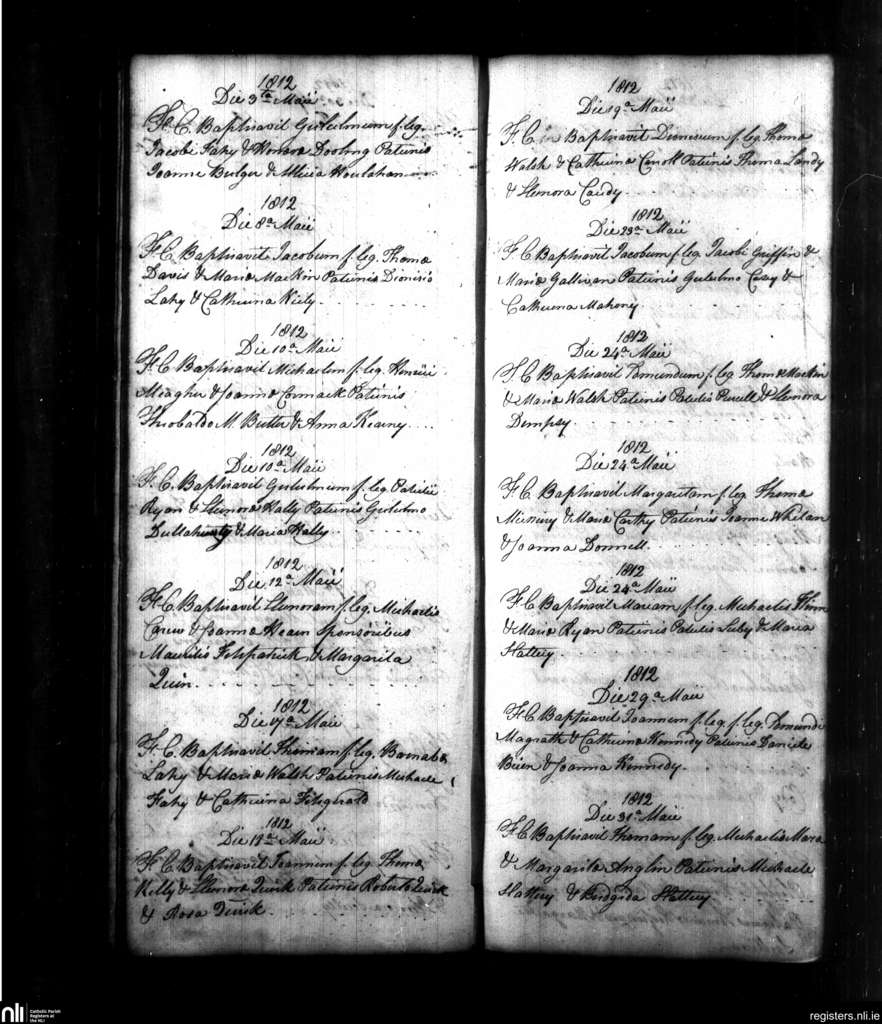 1812
Die 3ta Maii
F. C. Baptisavit Gulielmum f. leg.
Jacobi Fahy & Honora Dooling Patrinis
Joanne Bulger & Allicia Houlahan
1812
Die 8a Maii
F. C. Baptisavit Jacobum f. leg. Thoma
Davis & Maria Mackin Patrinis Dionisio
Lahy & Catherina Kiely
1812
Die 10a Maii
F. C. Baptisavit Michaelem f. leg. Henrici
Meagher & Joanna Cormack Patrinis
Theobaldo M. Butler & Anna Kearny
1812
Die 10a Maii
F. C. Baptisavit Gulielmum f. leg. Patricii
Ryan & Elenora Hally Patrinis Gulielmo
& Maria Hally
1812
Die 12a Maii
F. C. Baptisavit Elenoram f. leg. Michaelis
Carew & Joanna Hearn Sponsoribus
Mauritis Fitzpatrick & Margarita
Quin.
1812
Die 17a Maii
F. C. Baptisavit Thomam f. leg. Barnaba
Lahy & Maria Walsh Patrinis Michaele
Fahy & Catherina Fitzgerald
1812
Die 18a Maii
F. C. Baptisavit Joannem f. leg. Thoma
Kelly & Elenora Quirk Patrinis Roberto Quirk
& Rosa Quirk
1812
Die 19a Maii
F. C. Baptisavit Dionisium f. leg. Thoma
Walsh & Catherina Carroll Patrinis Thoma Landy
& Elenora Caudy
1812
Die 23a Maii
F. C. Baptisavit Jacobum f. leg. Jacobi Griffin &
Maria Gallivan Patrinis Gulielmo Casey &
Catherina Mahony
1812
Die 24a Maii
F. C. Baptisavit Edmundum f. leg. Thoma Mackin
& Maria Walsh Patrinis Patritis Purcell & Elenora
Dempsy.
1812
Die 24a Maii
F. C. Baptisavit Margaritam f. leg. Thoma
& Maria Carthy Patrinis Joanne Whelan
& Joanna Donnell.
1812
Die 24a Maii
F. C. Baptisavit Mariam f. leg. Michaelis Flinn
& Maria Ryan Patrinis Patritis & Maria
Slattery
1812
Die 29a Maii
F. C. Baptisavit Joannem f. leg. f. leg. Edmundi
Magrath & Catherina Kennedy Patrinis Daniele
Brien & Joanna Kennedy.
1812
Die 31a Maii
F. C. Baptisavit Thomam f. leg. Michaelis Mara
& Margarita Anglin Patrinis Michaele
Slattery & Bridgida Slattery
nli
Catholic Parish
Registers at
the NLI
registers.nli.ie